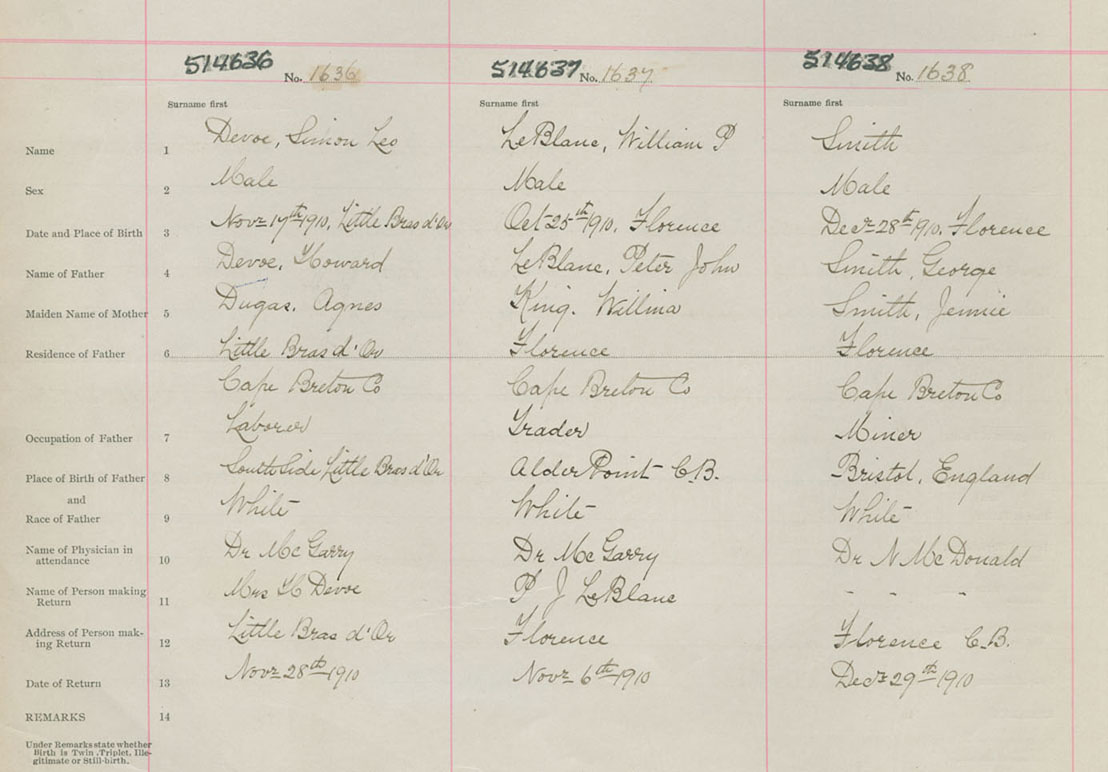 514636 No. 1636 514637 No. 1637 514638 No. 1638
Surname first Surname first Surname first
Name 1 Devoe, Simon Leo LeBlanc, William P Smith
Sex 2 Male Male Male
Date and Place of Birth 3 Novr 17th 1910, Little Bras d'Or Oct 25th 1910, Florence Decr 28th 1910, Florence
Name of Father 4 Devoe, Howard LeBlanc, Peter John Smith, George
Maiden Name of Mother 5 Dugas, Agnes King. Willina Smith, Jennie
Residence of Father 6 Little Bras d'Or Florence Florence
Cape Breton Co Cape Breton Co Cape Breton Co
Occupation of Father 7 Laborer Trader Miner
Place of Birth of Father 8 South Side Little Bras d'Or Alder Point C.B. Bristol, England
and
Race of Father 9 White White White
Name of Physician in
attendance 10 Dr McGarry Dr McGarry Dr N McDonald
Name of Person making
Return 11 Mrs H Devoe P J LeBlanc - - -
Address of Person mak-
ing Return 12 Little Bras d'Or Florence Florence C.B.
Date of Return 13 Novr 28th 1910 Novr 6th 1910 Decr 29th 1910
REMARKS 14
Under Remarks state whether
Birth is Twin, Triplet, Ille-
gitimate or Still-birth.